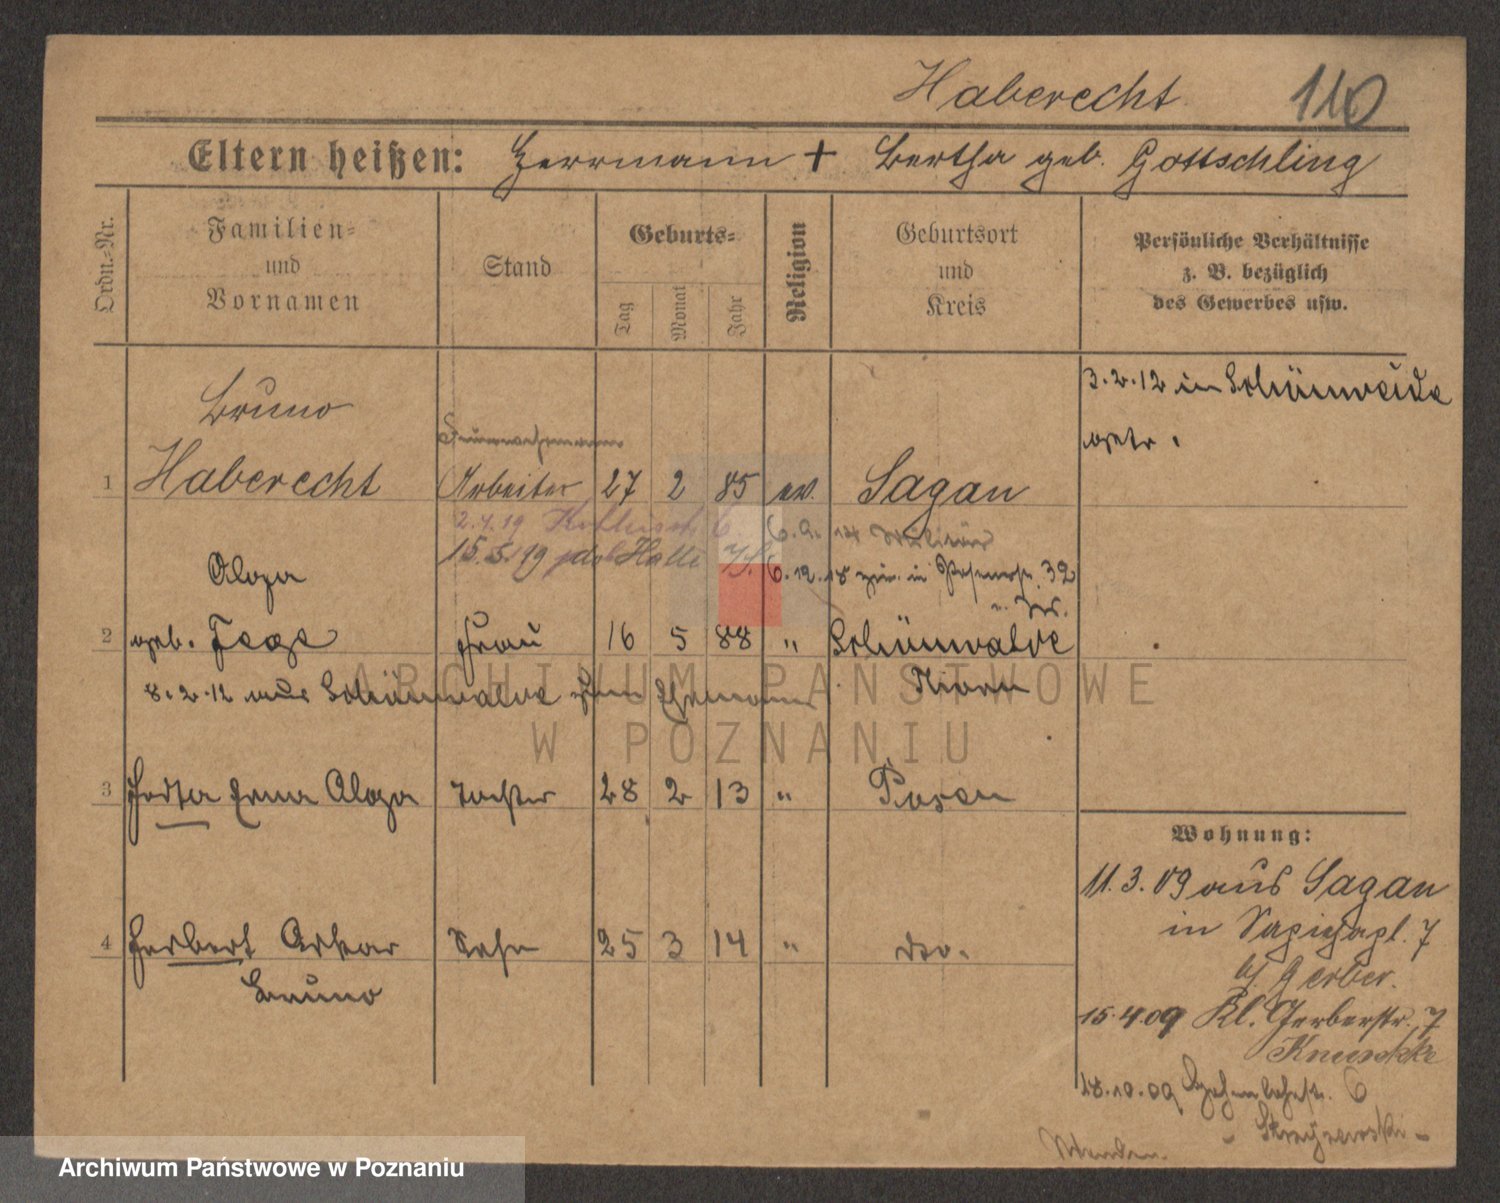 Haberecht 110
Eltern heißen: Herrmann + Bertha geb. Gottschling
Ordn.-Nr.
Familien-
und
Vornamen
Stand
Geburts-
Tag
Monat
Jahr
Religion
Geburtsort
und
Kreis
Persönliche Verhältnisse
z. B. bezüglich
des Gewerbes usw.
3.2.12 in Schönweide
getr.
Bruno
Feuerwehrmann
1 Haberecht Arbeiter 27 2 85 ev. Sagan
2.4.19
6.9.14 Militär
15.5.19 Halle
6.12.18 zur. in Posenerstr. 32
Olga
2 geb. Frau 16 5 88 " Schönwalde
8.2.12 aus Schönwalde zum Ehemann
3 Herta Erna Olga Tochter 28 2 13 " Posen
4 Herbert Oskar Sohn 25 3 14 " do.
Bruno
Wohnung:
11.3.09 aus Sagan
in Sapiehapl. 7
bj. Gerber.
15.4.09 Kl. Gerberstr. 7
28.10.09 6
ARCHIWUM PAŃSTWOWE
W POZNANIU
Archiwum Państwowe w Poznaniu